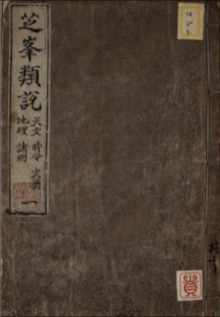 芝峯類說
天文 時令 災異
地理 諸國
一